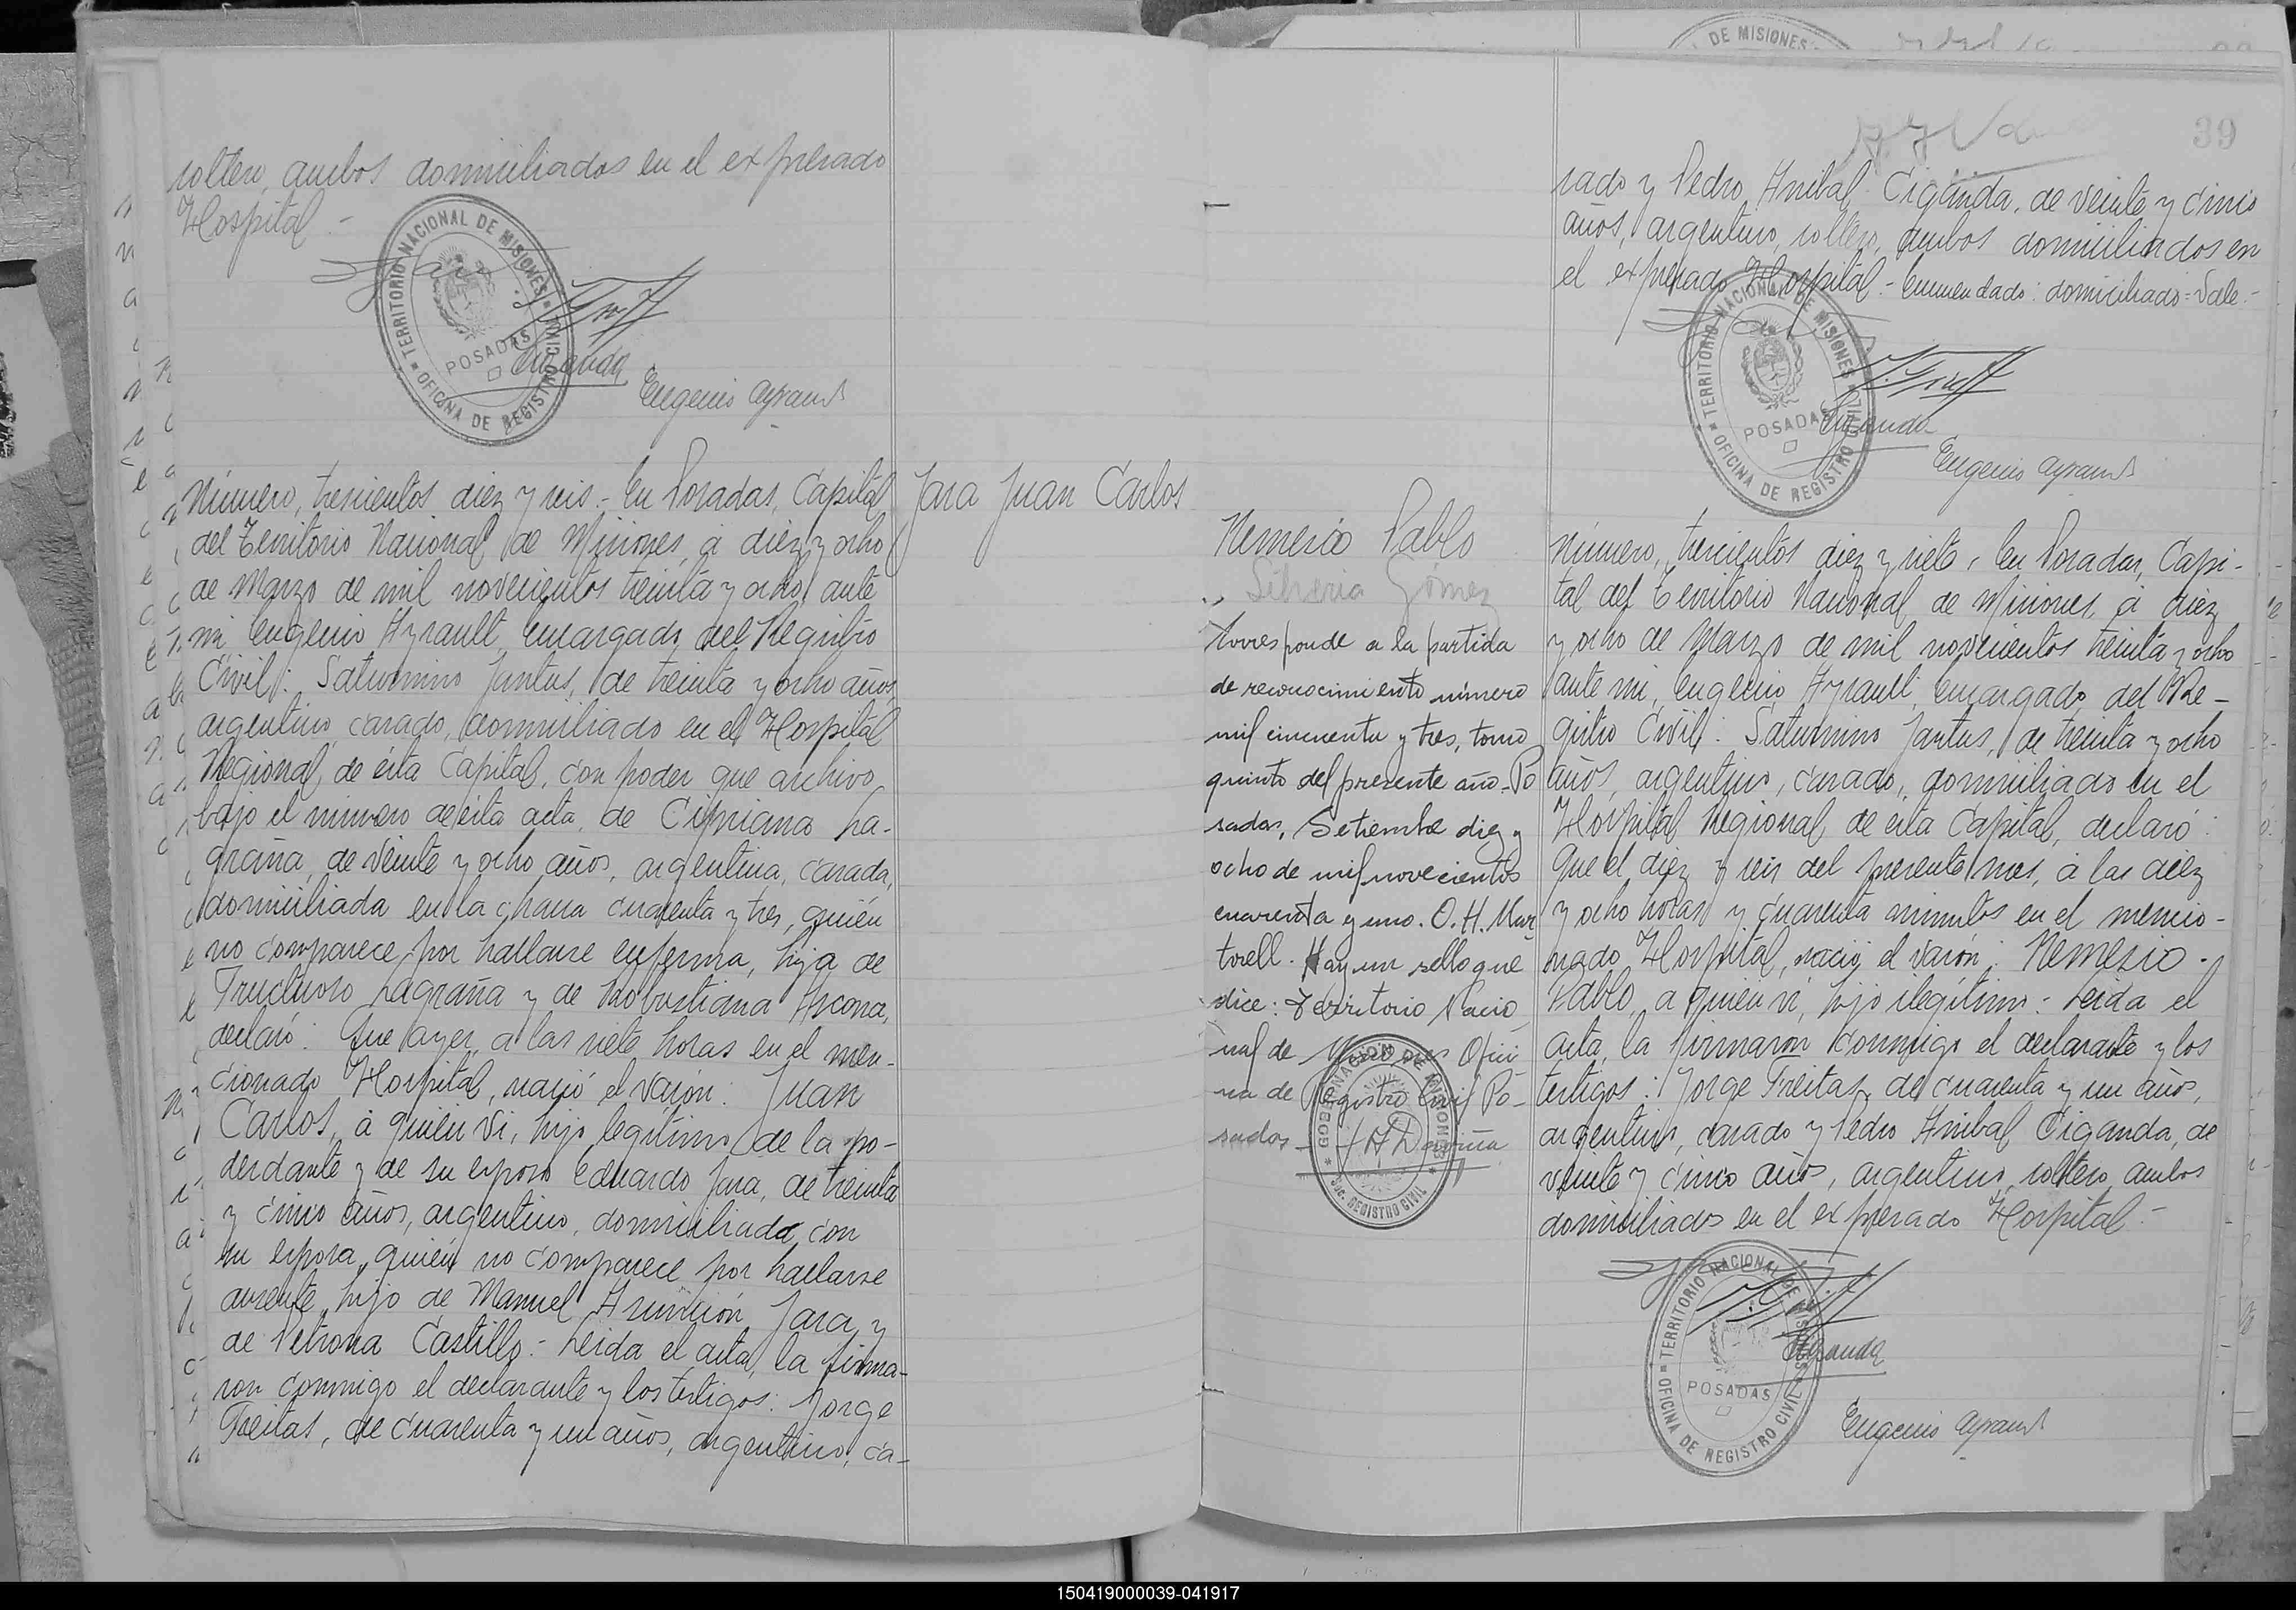 soltero, ambos domiciliados en el expresado
Hospital.-
TERRITORIO NACIONAL DE MISIONES
POSADAS
OFICINA DE REGISTRO CIVIL
Ciganda
Eugenio Ayrault
Número, trescientos diez y seis.- En Posadas, Capital
del Territorio Nacional de Misiones, á diez y ocho
de Marzo de mil novecientos treinta y ocho, ante
mi Eugenio Ayrault, encargado del Registro
Civil: Saturnino Jantus, de treinta y ocho años,
argentino, casado, domiciliado en el Hospital
Regional, de ésta Capital, con poder que archivo
bajo el número de ésta acta, de Cipriana La-
graña, de veinte y ocho años, argentina, casada,
domiciliada en la chacra cuarenta y tres, quién
no comparece por hallarse enferma, hija de
Fructuoso Lagraña y de Robustiana Ascona,
declaró: Que ayer, a las siete horas en el men-
cionado Hospital, nació el varón: Juan
Carlos, á quien vi, hijo legítimo de la po-
derdante y de su esposo Eduardo Jara, de treinta
y cinco años, argentino, domiciliado con
su esposa, quién no comparece por hallarse
ausente, hijo de Manuel Asunción Jara y
de Petrona Castillo.- Leida el acta, la firma-
ron conmigo el declarante y los testigos: Jorge
Freitas, de cuarenta y un años, argentino, ca-
Jara Juan Carlos
DE MISIONES
39
sado y Pedro Anibal Ciganda, de veinte y cinco
años, argentino, soltero, ambos domiciliados en
el expresado Hospital.- Enmendado: domiciliado=Vale.-
TERRITORIO NACIONAL DE MISIONES
POSADAS
OFICINA DE REGISTRO CIVIL
Ciganda
Eugenio Ayrault
Nemesio Pablo
Silveria Gómez
Corresponde a la partida
de reconocimiento número
mil cincuenta y tres, tomo
quinto del presente año. Po
sadas, Setiembre diez y
ocho de mil novecientos
cuarenta y uno. O. H. Mar
torell. Hay un sello que
dice: Territorio Nacio
nal de Misiones Ofici
na de Registro Civil Po-
sadas-
GOBERNACION DE MISIONES
REGISTRO CIVIL
Número, trescientos diez y siete, En Posadas, Capi-
tal del Territorio Nacional de Misiones, á diez
y ocho de Marzo de mil novecientos treinta y ocho
ante mi, Eugenio Ayrault, encargado del Re-
gistro Civil: Saturnino Jantus, de treinta y ocho
años, argentino, casado, domiciliado en el
Hospital Regional, de ésta Capital, declaró:
Que el diez y seis del presente mes, á las diez
y ocho horas y cuarenta minutos en el mencio-
nado Hospital, nació el varón: Nemesio
Pablo, a quien vi, hijo ilegítimo.- Leida el
acta, la firmaron conmigo el declarante y los
testigos: Jorge Freitas, de cuarenta y un años,
argentino, casado y Pedro Anibal Ciganda, de
veinte y cinco años, argentino, soltero, ambos
domiciliados en el expresado Hospital.-
TERRITORIO NACIONAL DE MISIONES
Ciganda
POSADAS
OFICINA DE REGISTRO CIVIL
Eugenio Ayrault
150419000039-041917